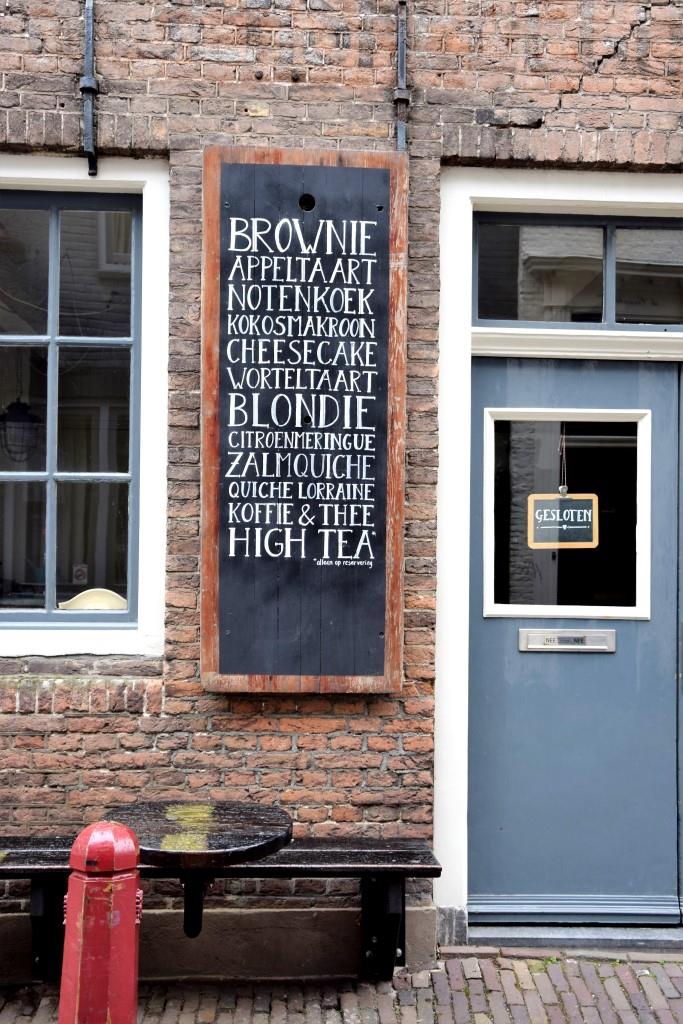 BROWNIE
APPELTAART
NOTENKOEK
KOKOSMAKROON
CHEESECAKE
WORTELTAART
BLONDIE
CITROENMERINGUE
ZALMQUICHE
QUICHE LORRAINE
KOFFIE & THEE
HIGH TEA*
*alleen op reservering
GESLOTEN
NEE NEE